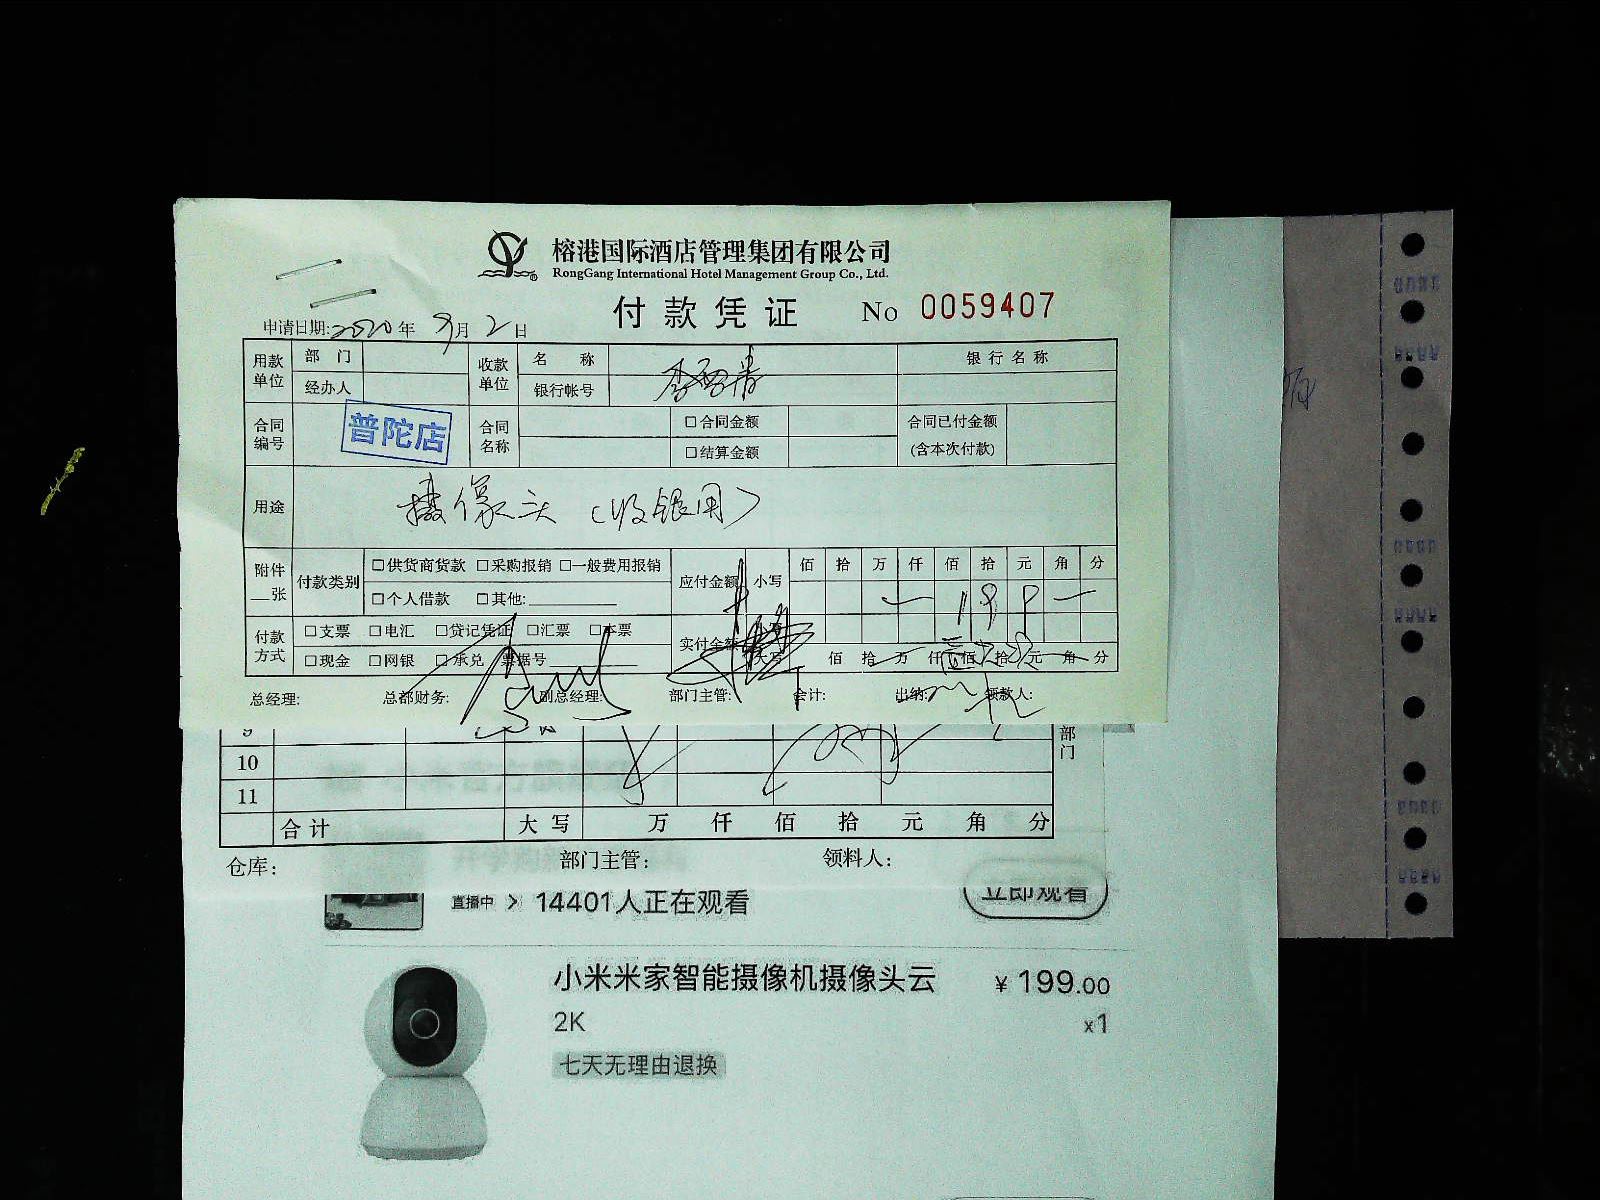 榕港国际酒店管理集团有限公司
RongGang International Hotel Management Group Co., Ltd.
付款凭证 No 0059407
申请日期:2020年9月2日
用款单位 部门 收款单位 名称 银行名称
经办人 银行帐号
合同编号 普陀店 合同名称 □合同金额 合同已付金额
□结算金额 (含本次付款)
用途 摄像头(收银用)
附件__张 付款类别 □供货商货款 □采购报销 □一般费用报销 应付金额 小写 佰 拾 万 仟 佰 拾 元 角 分
□个人借款 □其他: 199
付款方式 □支票 □电汇 □贷记凭证 □汇票 □本票 实付金额
□现金 □网银 □承兑 票据号 大写 佰 拾 万 仟 佰 拾 元 角 分
总经理: 总部财务: 副总经理: 部门主管: 会计: 出纳: 领款人:
9 部门
10
11
合计 大写 万 仟 佰 拾 元 角 分
仓库: 部门主管: 领料人:
直播中 > 14401人正在观看 立即观看
小米米家智能摄像机摄像头云 ¥199.00
2K x1
七天无理由退换